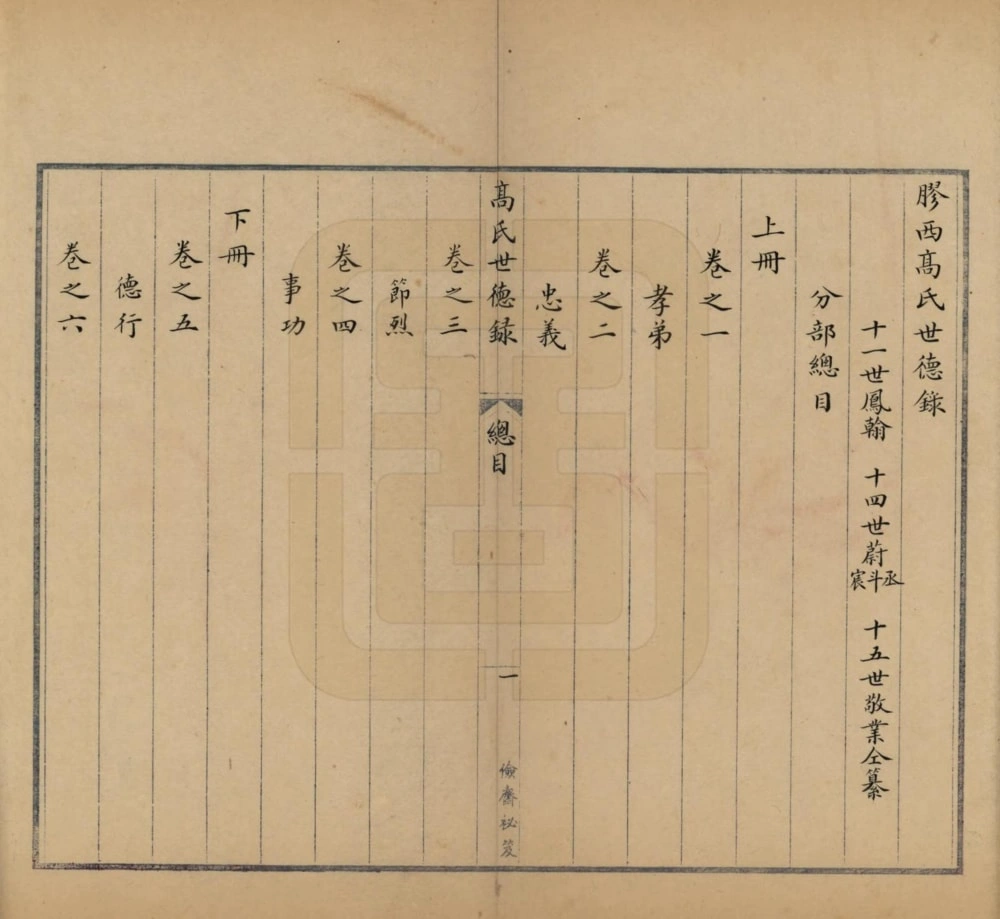 膠西髙氏世德錄
十一世鳳翰　十四世蔚丞斗宸　十五世敬業仝纂
分部總目
上冊
卷之一
孝弟
卷之二
忠義
髙氏世德録
總目
一
儉齋祕笈
卷之三
節烈
卷之四
事功
下冊
卷之五
德行
卷之六